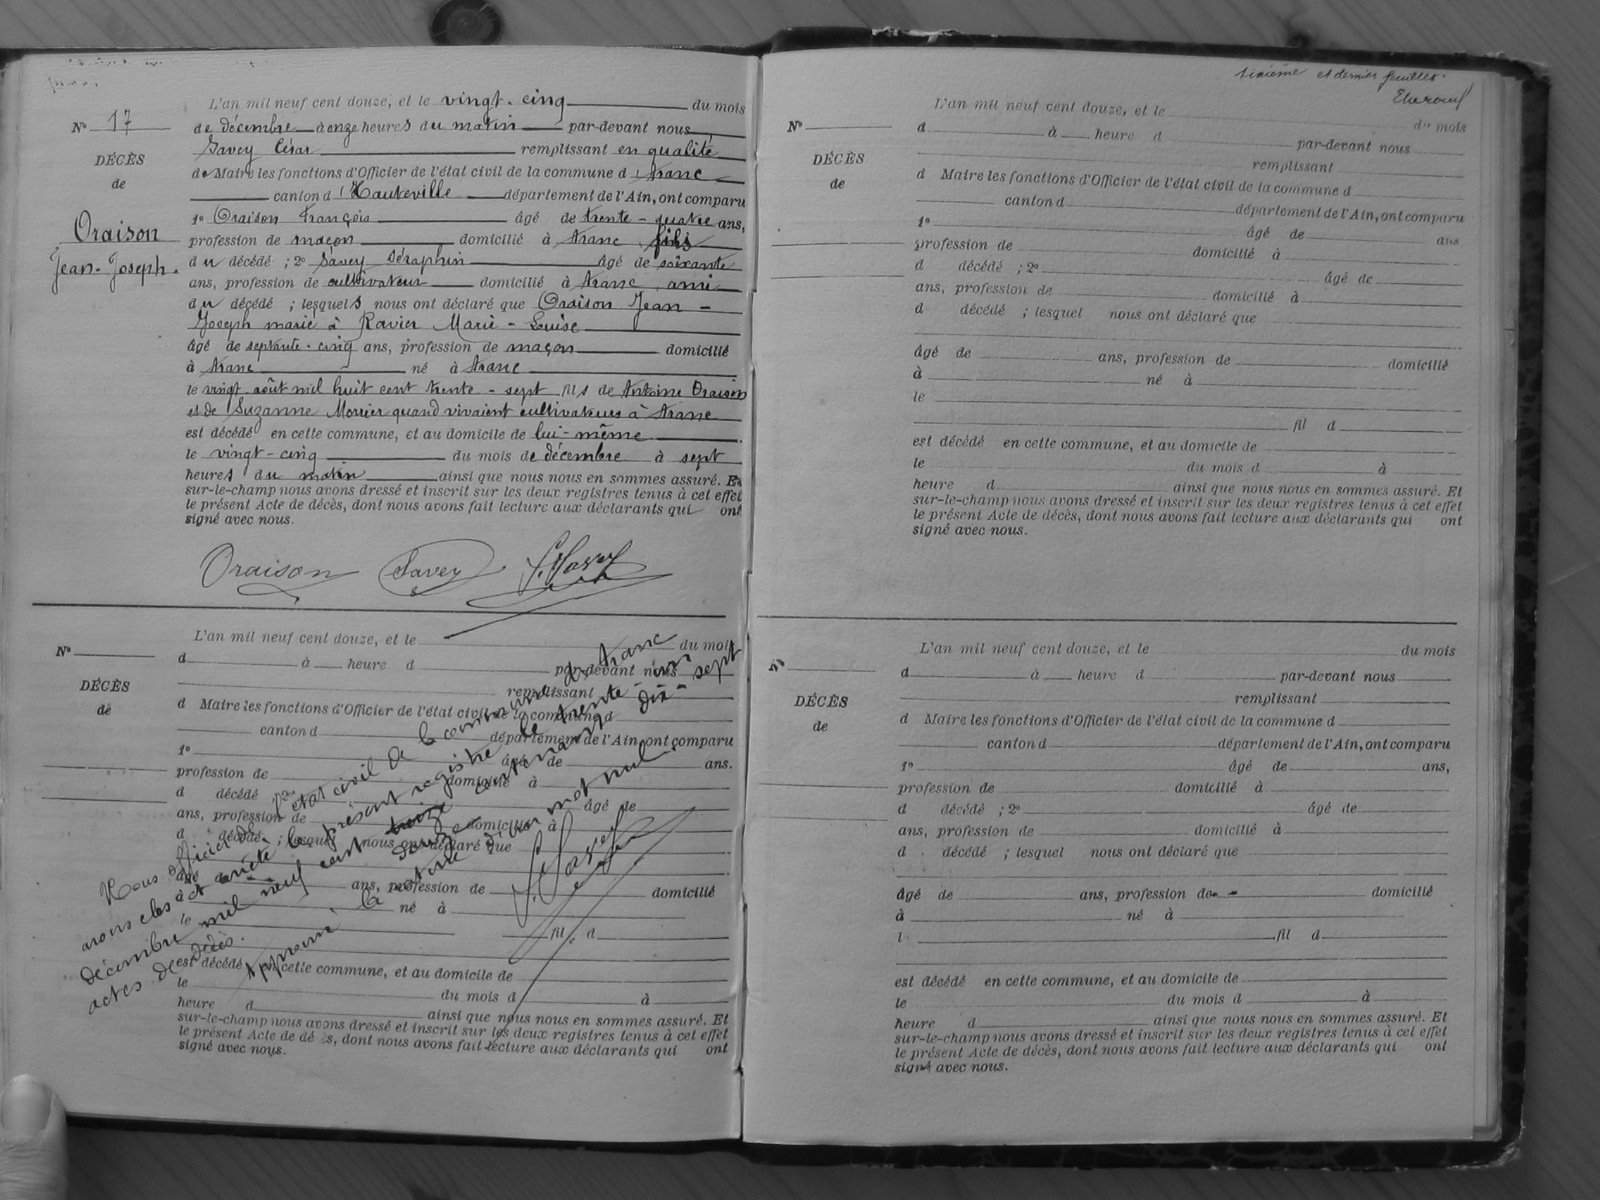 L'an mil neuf cent douze, et le vingt-cinq du mois
N° 17
de décembre à onze heures du matin par-devant nous
Savey César remplissant en qualité
DÉCÈS
de Maire les fonctions d'Officier de l'état civil de la commune d'Aranc
de
canton d'Hauteville département de l'Ain, ont comparu
1° Oraison François âgé de trente-quatre ans,
Oraison
Jean-Joseph.
profession de maçon domicilié à Aranc fils
du décédé ; 2° Savey Séraphin âgé de soixante
ans, profession de cultivateur domicilié à Aranc ami
du décédé ; lesquels nous ont déclaré que Oraison Jean-
Joseph marié à Ravier Marie-Louise
âgé de septante-cinq ans, profession de maçon domicilié
à Aranc né à Aranc
le vingt août mil huit cent trente-sept fils de Antoine Oraison
et de Suzanne quand vivaient cultivateurs à Aranc
est décédé en cette commune, et au domicile de lui-même
le vingt-cinq du mois de décembre à sept
heures du matin ainsi que nous nous en sommes assuré. Et
sur-le-champ nous avons dressé et inscrit sur les deux registres tenus à cet effet
le présent Acte de décès, dont nous avons fait lecture aux déclarants qui ont
signé avec nous.
Oraison Savey C. Savey
L'an mil neuf cent douze, et le du mois
N°
d à heure d par-devant nous
remplissant
DÉCÈS
de
d Maire les fonctions d'Officier de l'état civil de la commune d
canton d département de l'Ain, ont comparu
1° âgé de ans.
profession de domicilié à
d décédé ; 2° âgé de
ans, profession de domicilié à
d décédé ; lesquel nous ont déclaré que
âgé de ans, profession de domicilié
à né à
le
fil d
est décédé en cette commune, et au domicile de
le du mois d à
heure d ainsi que nous nous en sommes assuré. Et
sur-le-champ nous avons dressé et inscrit sur les deux registres tenus à cet effet
le présent Acte de décès, dont nous avons fait lecture aux déclarants qui ont
signé avec nous.
Nous officier de l'état civil de la commune d'Aranc
avons clos et arrêté le présent registre le trente-un
décembre mil neuf cent treize douze contenant dix-sept
actes de décès.
Approuvé la rature d'un mot nul.
C. Savey
sixième et dernier feuillet.
L'an mil neuf cent douze, et le du mois
N°
d à heure d par-devant nous
remplissant
DÉCÈS
de
d Maire les fonctions d'Officier de l'état civil de la commune d
canton d département de l'Ain, ont comparu
1° âgé de ans
profession de domicilié à
d décédé ; 2° âgé de
ans, profession de domicilié à
d décédé ; lesquel nous ont déclaré que
âgé de ans, profession de domicilié
à né à
le
fil d
est décédé en cette commune, et au domicile de
le du mois d à
heure d ainsi que nous nous en sommes assuré. Et
sur-le-champ nous avons dressé et inscrit sur les deux registres tenus à cet effet
le présent Acte de décès, dont nous avons fait lecture aux déclarants qui ont
signé avec nous.
L'an mil neuf cent douze, et le du mois
N°
d à heure d par-devant nous
remplissant
DÉCÈS
de
d Maire les fonctions d'Officier de l'état civil de la commune d
canton d département de l'Ain, ont comparu
1° âgé de ans,
profession de domicilié à
d décédé ; 2° âgé de
ans, profession de domicilié à
d décédé ; lesquel nous ont déclaré que
âgé de ans, profession de domicilié
à né à
l fil d
est décédé en cette commune, et au domicile de
le du mois d à
heure d ainsi que nous nous en sommes assuré. Et
sur-le-champ nous avons dressé et inscrit sur les deux registres tenus à cet effet
le présent Acte de décès, dont nous avons fait lecture aux déclarants qui ont
signé avec nous.